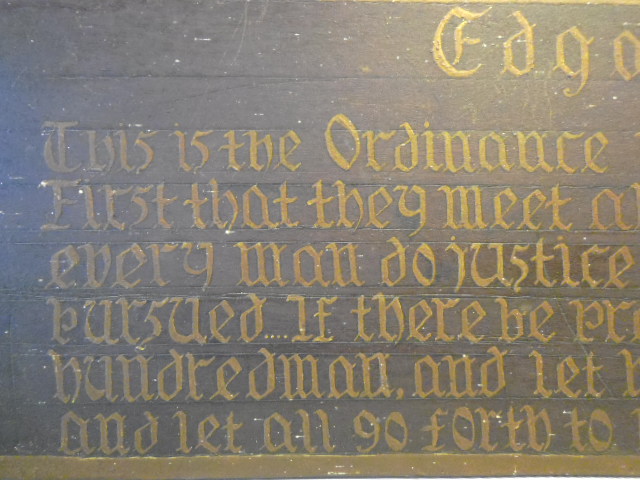 Edga
This is the Ordinance
First that they meet al
every man do justice
pursued....If there be pri
hundredman, and let h
and let all go forth to